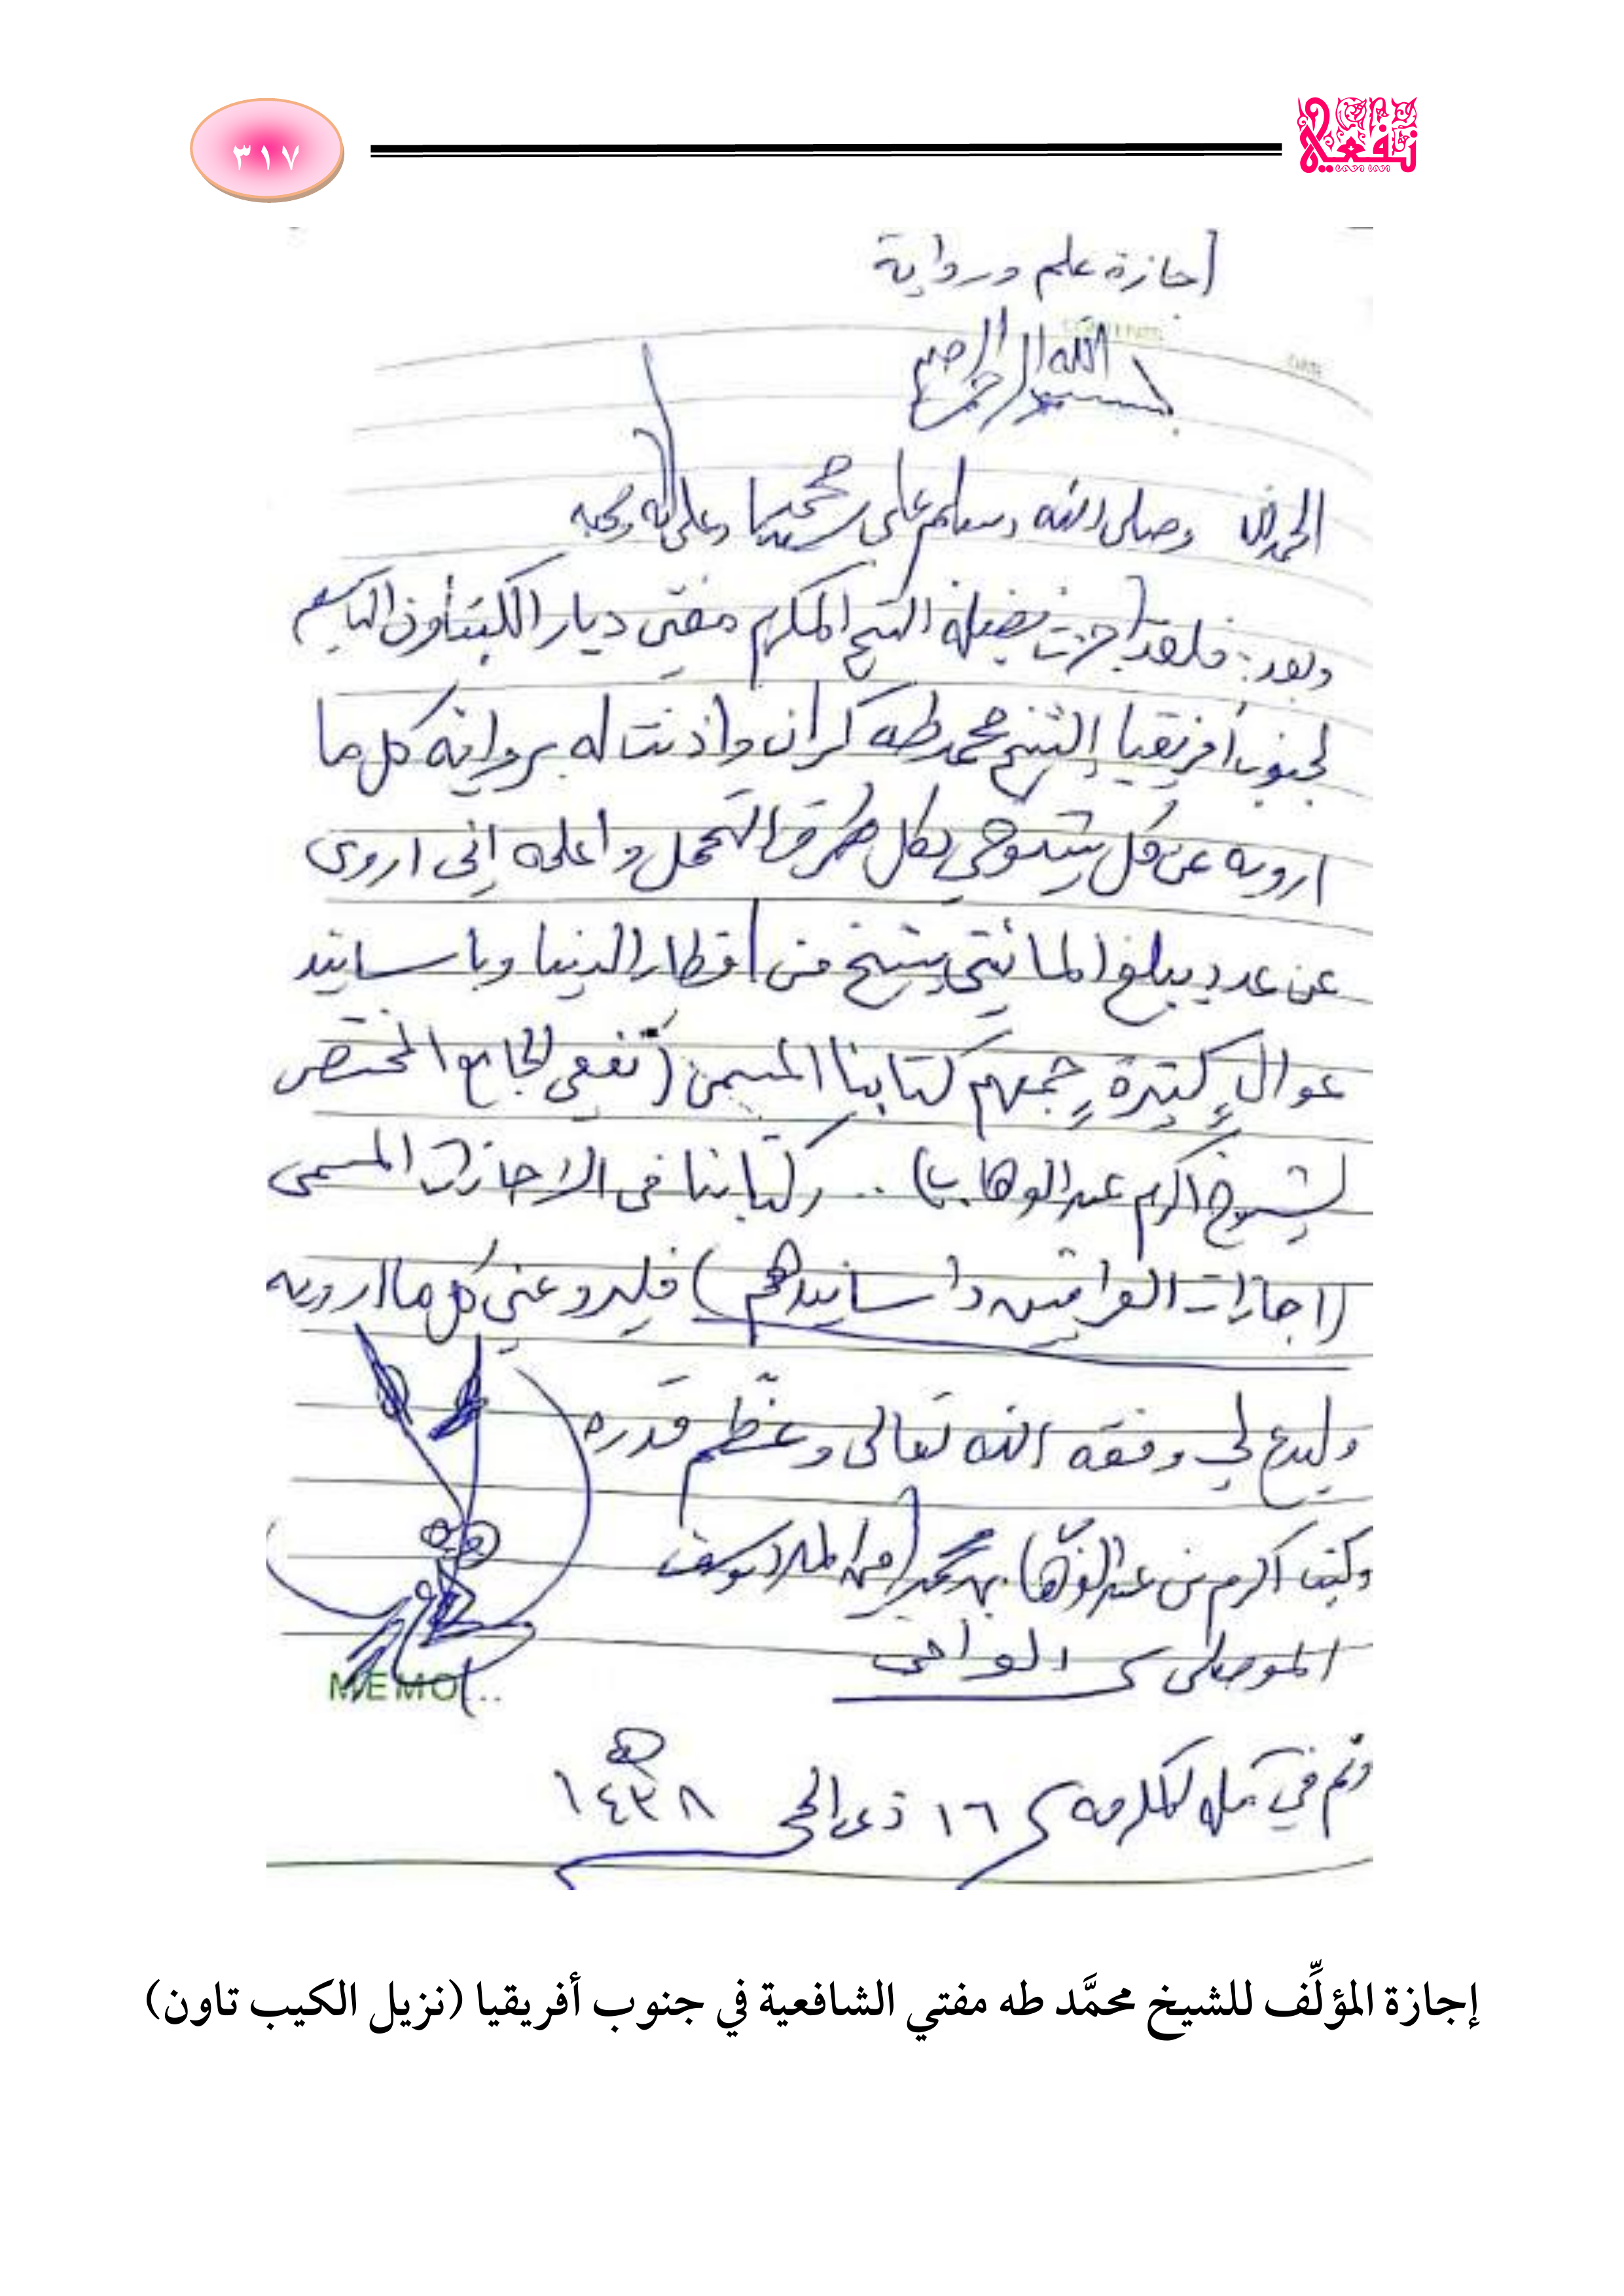 ٣١٧
نفعية
إجازة علم ورواية
CONTENTS
DATE
بسم الله الرحمن الرحيم
الحمد لله وصلى الله وسلم على سيدنا محمد وعلى آله وصحبه
وبعد: فلقد أجزت فضيلة الشيخ المكرم مفتي ديار الكيبتاون
لجنوب أفريقيا الشيخ محمد طه كران واذنت له برواية كل ما
ارويه عن كل شيوخي بكل طرق التحمل واعلمه إني اروي
عن عدد يبلغ المائتي شيخ من اقطار الدنيا وباسانيد
عوالٍ كثيرة جمعهم كتابنا المسمى (نفعي الجامع المختصر
لشيوخ اكرم عبد الوهاب) .. وكتابنا في الاجازات المسمى
(اجازات العراقيين واسانيدهم) فليرو عني كل ما ارويه
وليدع لي وفقه الله تعالى وعظّم قدره
وكتب اكرم بن عبد الوهاب بن محمد امين الملا يوسف
الموصلي العراقي
MEMO...
وتم في مكه المكرمه ١٦ ذي الحجة ١٤٣٨ هـ
إجازة المؤلِّف للشيخ محمَّد طه مفتي الشافعية في جنوب أفريقيا (نزيل الكيب تاون)